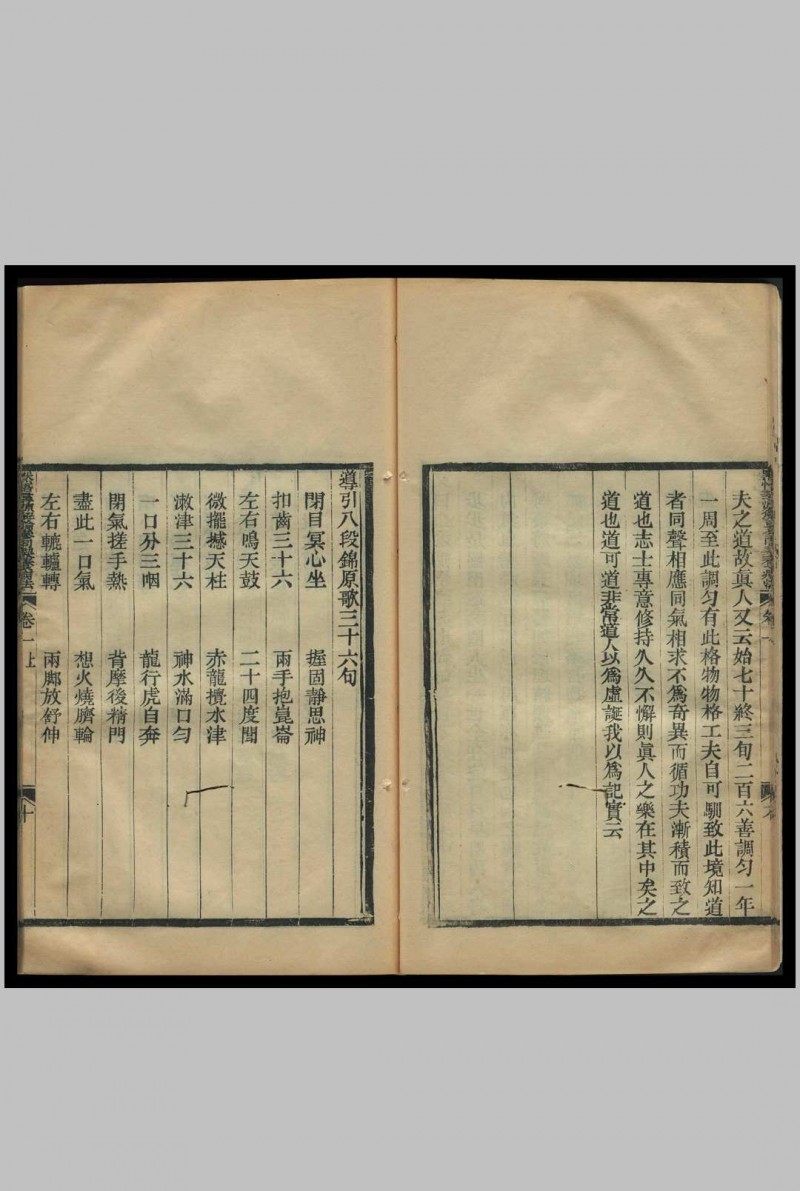 夫之道故眞人又云始七十終三旬二百六善調勻一年
一周至此調勻有此格物物格工夫自可馴致此境知道
者同聲相應同氣相求不爲奇異而循功夫漸積而致之
道也志士專意修持久久不懈則眞人之樂在其中矣之
道也道可道非常道人以爲虛誕我以爲記實云
導引八段錦原歌三十六句
閉目冥心坐 握固靜思神
扣齒三十六 兩手抱崑崙
左右鳴天鼓 二十四度聞
微擺撼天柱 赤龍攪水津
漱津三十六 神水滿口勻
一口分三咽 龍行虎自奔
閉氣搓手熱 背摩後精門
盡此一口氣 想火燒臍輪
左右轆轤轉 兩脚放舒伸
卷一上 十